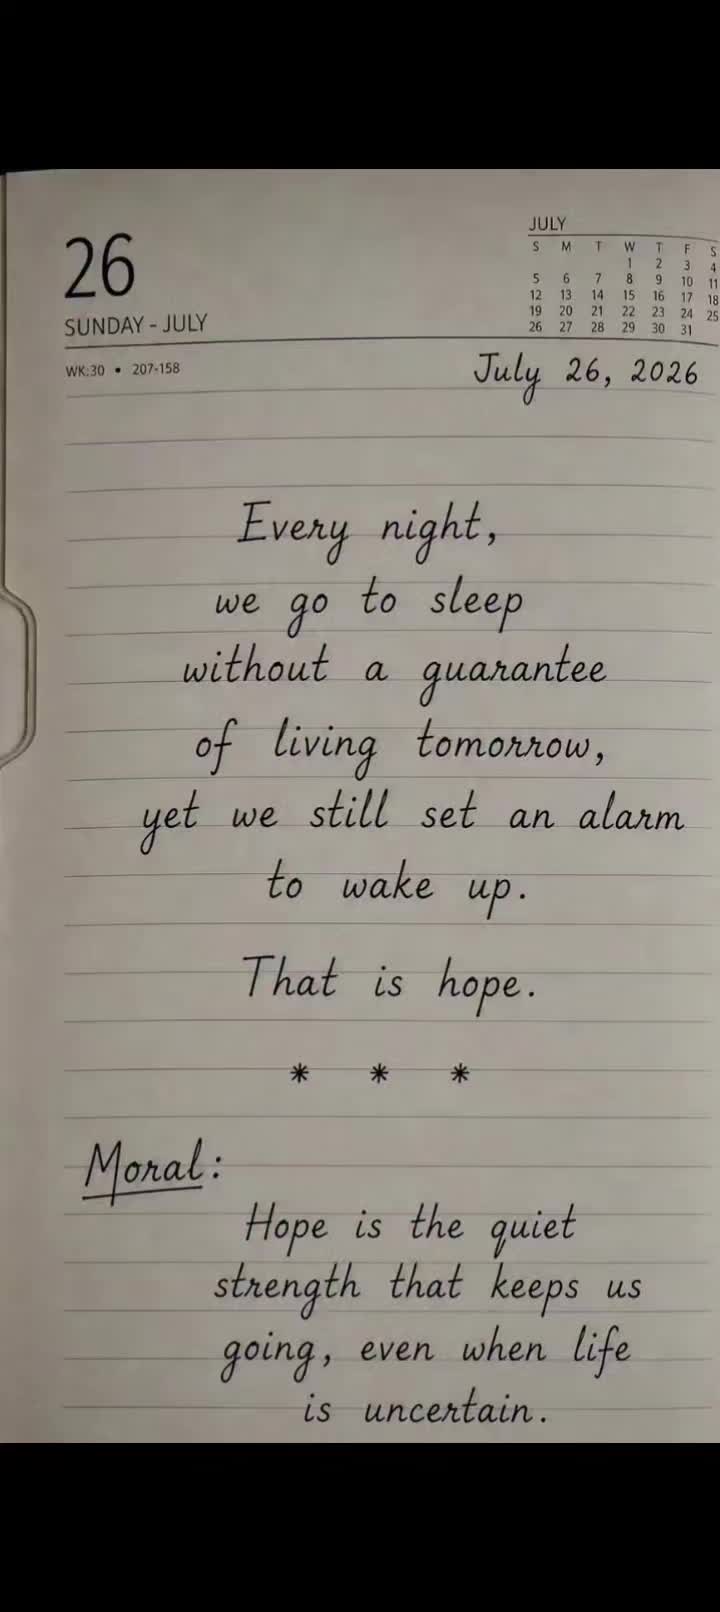 26
SUNDAY - JULY
WK:30 • 207-158
JULY
S M T W T F S
1 2 3 4
5 6 7 8 9 10 11
12 13 14 15 16 17 18
19 20 21 22 23 24 25
26 27 28 29 30 31
July 26, 2026
Every night,
we go to sleep
without a guarantee
of living tomorrow,
yet we still set an alarm
to wake up.
That is hope.
* * *
Moral:
Hope is the quiet
strength that keeps us
going, even when life
is uncertain.